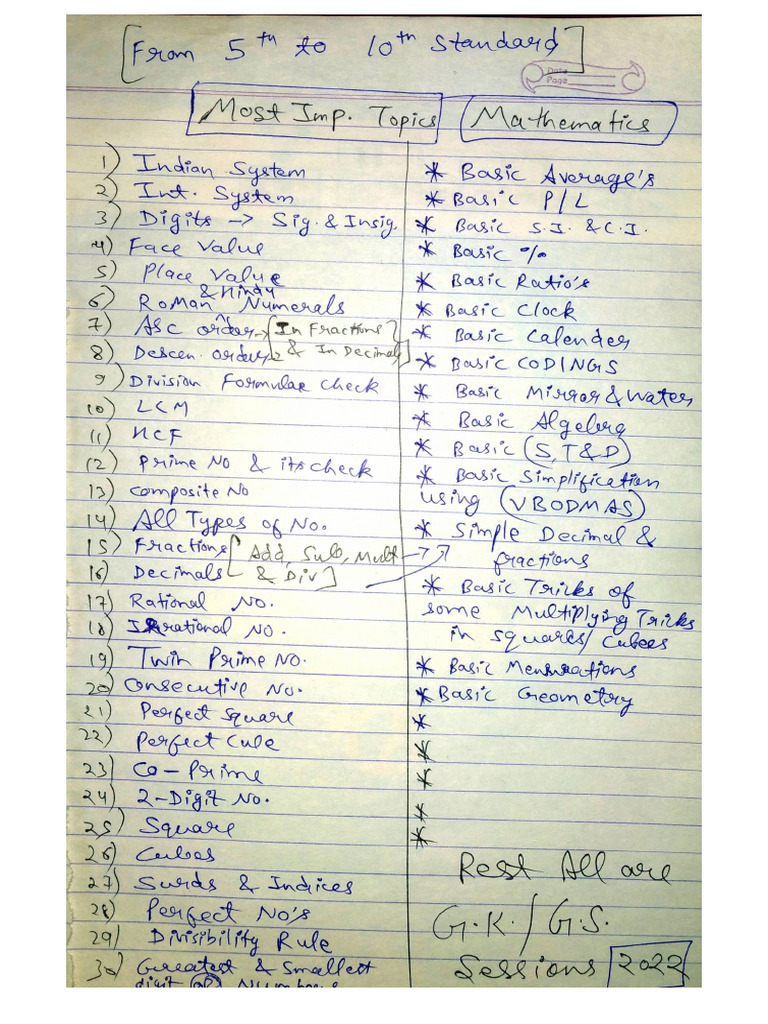 [From 5th to 10th Standard]
Date
Page
Most Imp. Topics
Mathematics
1) Indian System
2) Int. System
3) Digits → Sig. & Insig.
4) Face Value
5) Place Value
& Hindu
6) Roman ^ Numerals
7) Asc order → [In Fractions
8) Descen. order & In Decimals]
9) Division Formulae check
10) LCM
11) HCF
12) Prime No & its check
13) Composite No
14) All Types of No.
15) Fractions [Add, Sub, Mult
16) Decimals & Div]
17) Rational No.
18) Irrational No.
19) Twin Prime No.
20) Consecutive No.
21) Perfect Square
22) Perfect Cule
23) Co-Prime
24) 2-Digit No.
25) Square
26) Cubes
27) Surds & Indices
28) Perfect No's
29) Divisibility Rule
30) Greatest & Smallest
digit of Numbers
* Basic Average's
* Basic P/L
* Basic S.I. & C.I.
* Basic %
* Basic Ratio's
* Basic Clock
* Basic Calender
* Basic CODINGS
* Basic Mirror & Water
* Basic Algebra
* Basic (S,T&D)
* Basic Simplification
using (VBODMAS)
* Simple Decimal &
fractions
* Basic Tricks of
some Multiplying Tricks
in squares/Cubes
* Basic Mensurations
* Basic Geometry
*
*
*
*
*
Rest All are
G.K./G.S.
Sessions 2022